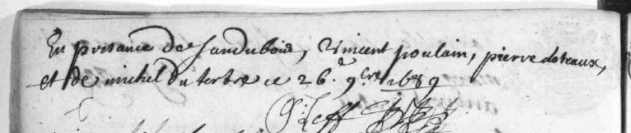 En presance de Jandubois, Vincent poulain, pierre desreaux,
et de michel du tertre ce 26.e 9.bre 1689